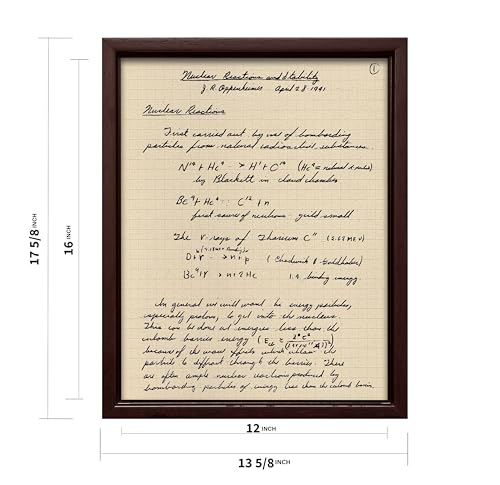 Nuclear Reactions and Stability
J. R. Oppenheimer April 28 1941
1
Nuclear Reactions
First carried out by use of bombarding
particles from natural radioactive substances.
N¹⁴ + He⁴ → H¹ + C¹⁴ (He⁴ = natural α rules)
by Blackett in cloud chamber
Be⁹ + He⁴ : C¹² + n
first source of neutrons - yield small
The γ-rays of Thorium C" (2.62 MEV)
D + γ → n + p (Chadwick & Goldhaber)
Be⁹ + γ → n + 2He 1.9 binding energy
In general we will want be energy particles,
especially protons, to get into the nucleus.
This can be done at energies less than the
coulomb barrier energy
because of the wave effects which allow the
particle to diffract through the barrier. There
are often ample nuclear reactions produced by
bombarding particles of energy less than the coulomb barrier.
17 5/8 INCH
16 INCH
12 INCH
13 5/8 INCH